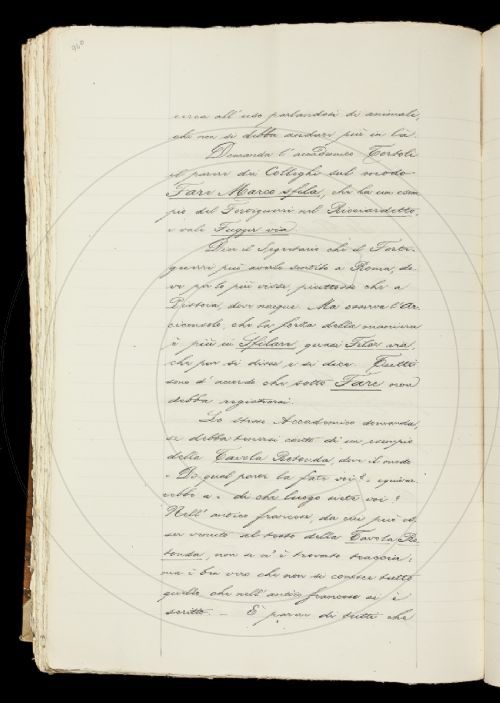 960
circa all' uso parlandosi di animali,
che non si debba andare più in là.
Domanda l' accademico Tortoli
il parere dei Colleghi sul modo
Fare Marco sfila, che ha un esem
pio del Forteguerri nel Ricciardetto,
e vale Fuggir via.
Dice il Segretario che il Forte-
guerri può averlo sentito a Roma, do-
ve per lo più visse, piuttosto che a
Pistoia, dove nacque. Ma osserva l' Ar-
ciconsolo, che la forza della maniera
è più in Sfilare, quasi Filar via,
che pur si disse e si dice. Tutti
sono d' accordo che sotto Fare non
debba registrarsi.
Lo stesso Accademico domanda,
se debba tenersi conto di un esempio
della Tavola Ritonda, dove il modo
" Di qual paese la fate voi? " equivar-
rebbe a " di che luogo siete voi?
Nell' antico francese, da cui può es-
ser venuto al testo della Tavola Ri-
tonda, non se n' è trovato traccia;
ma è ben vero che non si conosce tutto
quello che nell' antico francese si è
scritto. — È parere di tutti che